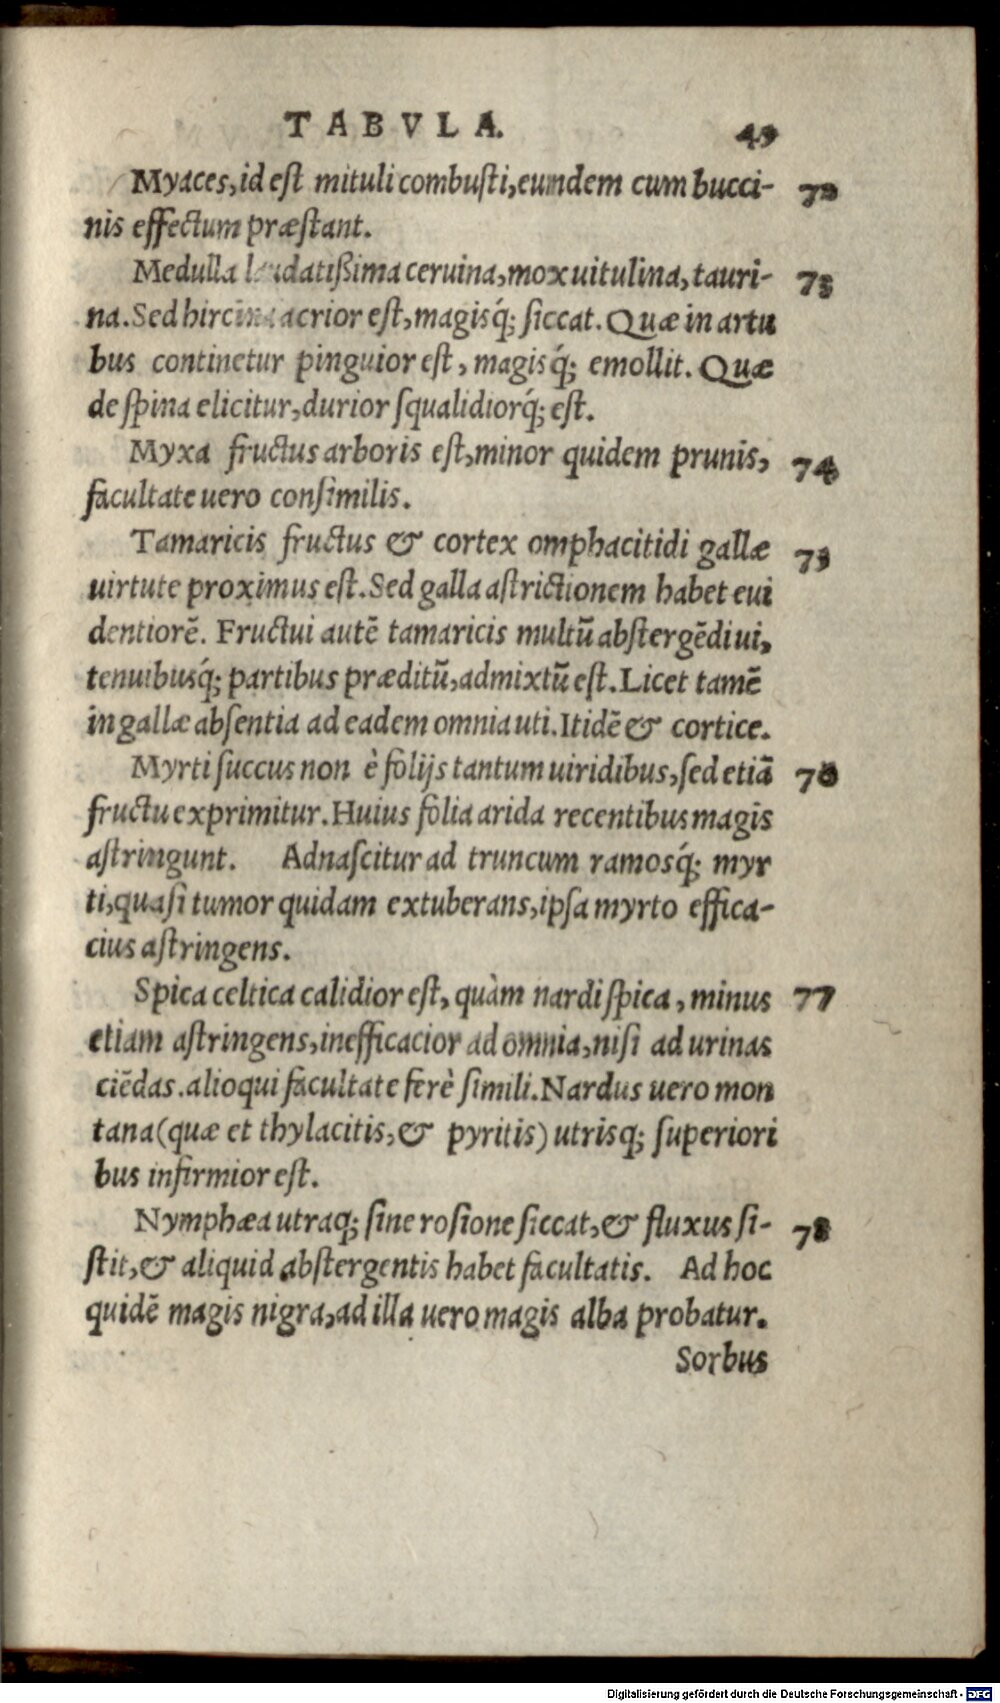 TABVLA. 49
Myaces, id est mituli combusti, eundem cum bucci- 72
nis effectum præstant.
Medulla laudatißima ceruina, mox uitulina, tauri- 73
na. Sed hircina acrior est, magisq́; siccat. Quæ in artu
bus continetur pinguior est, magisq́; emollit. Quæ
de spina elicitur, durior squalidiorq́; est.
Myxa fructus arboris est, minor quidem prunis, 74
facultate uero consimilis.
Tamaricis fructus & cortex omphacitidi gallæ 75
uirtute proximus est. Sed galla astrictionem habet eui
dentiorē. Fructui autē tamaricis multū abstergēdi ui,
tenuibusq́; partibus præditū, admixtū est. Licet tamē
in gallæ absentia ad eadem omnia uti. Itidē & cortice.
Myrti succus non è folijs tantum uiridibus, sed etiā 76
fructu exprimitur. Huius folia arida recentibus magis
astringunt. Adnascitur ad truncum ramosq́; myr
ti, quasi tumor quidam extuberans, ipsa myrto effica-
cius astringens.
Spica celtica calidior est, quàm nardi spica, minus 77
etiam astringens, inefficacior ad omnia, nisi ad urinas
ciēdas. alioqui facultate ferè simili. Nardus uero mon
tana (quæ et thylacitis, & pyritis) utrisq; superiori
bus infirmior est.
Nymphæa utraq; sine rosione siccat, & fluxus si- 78
stit, & aliquid abstergentis habet facultatis. Ad hoc
quidē magis nigra, ad illa uero magis alba probatur.
Sorbus
Digitalisierung gefördert durch die Deutsche Forschungsgemeinschaft - DFG